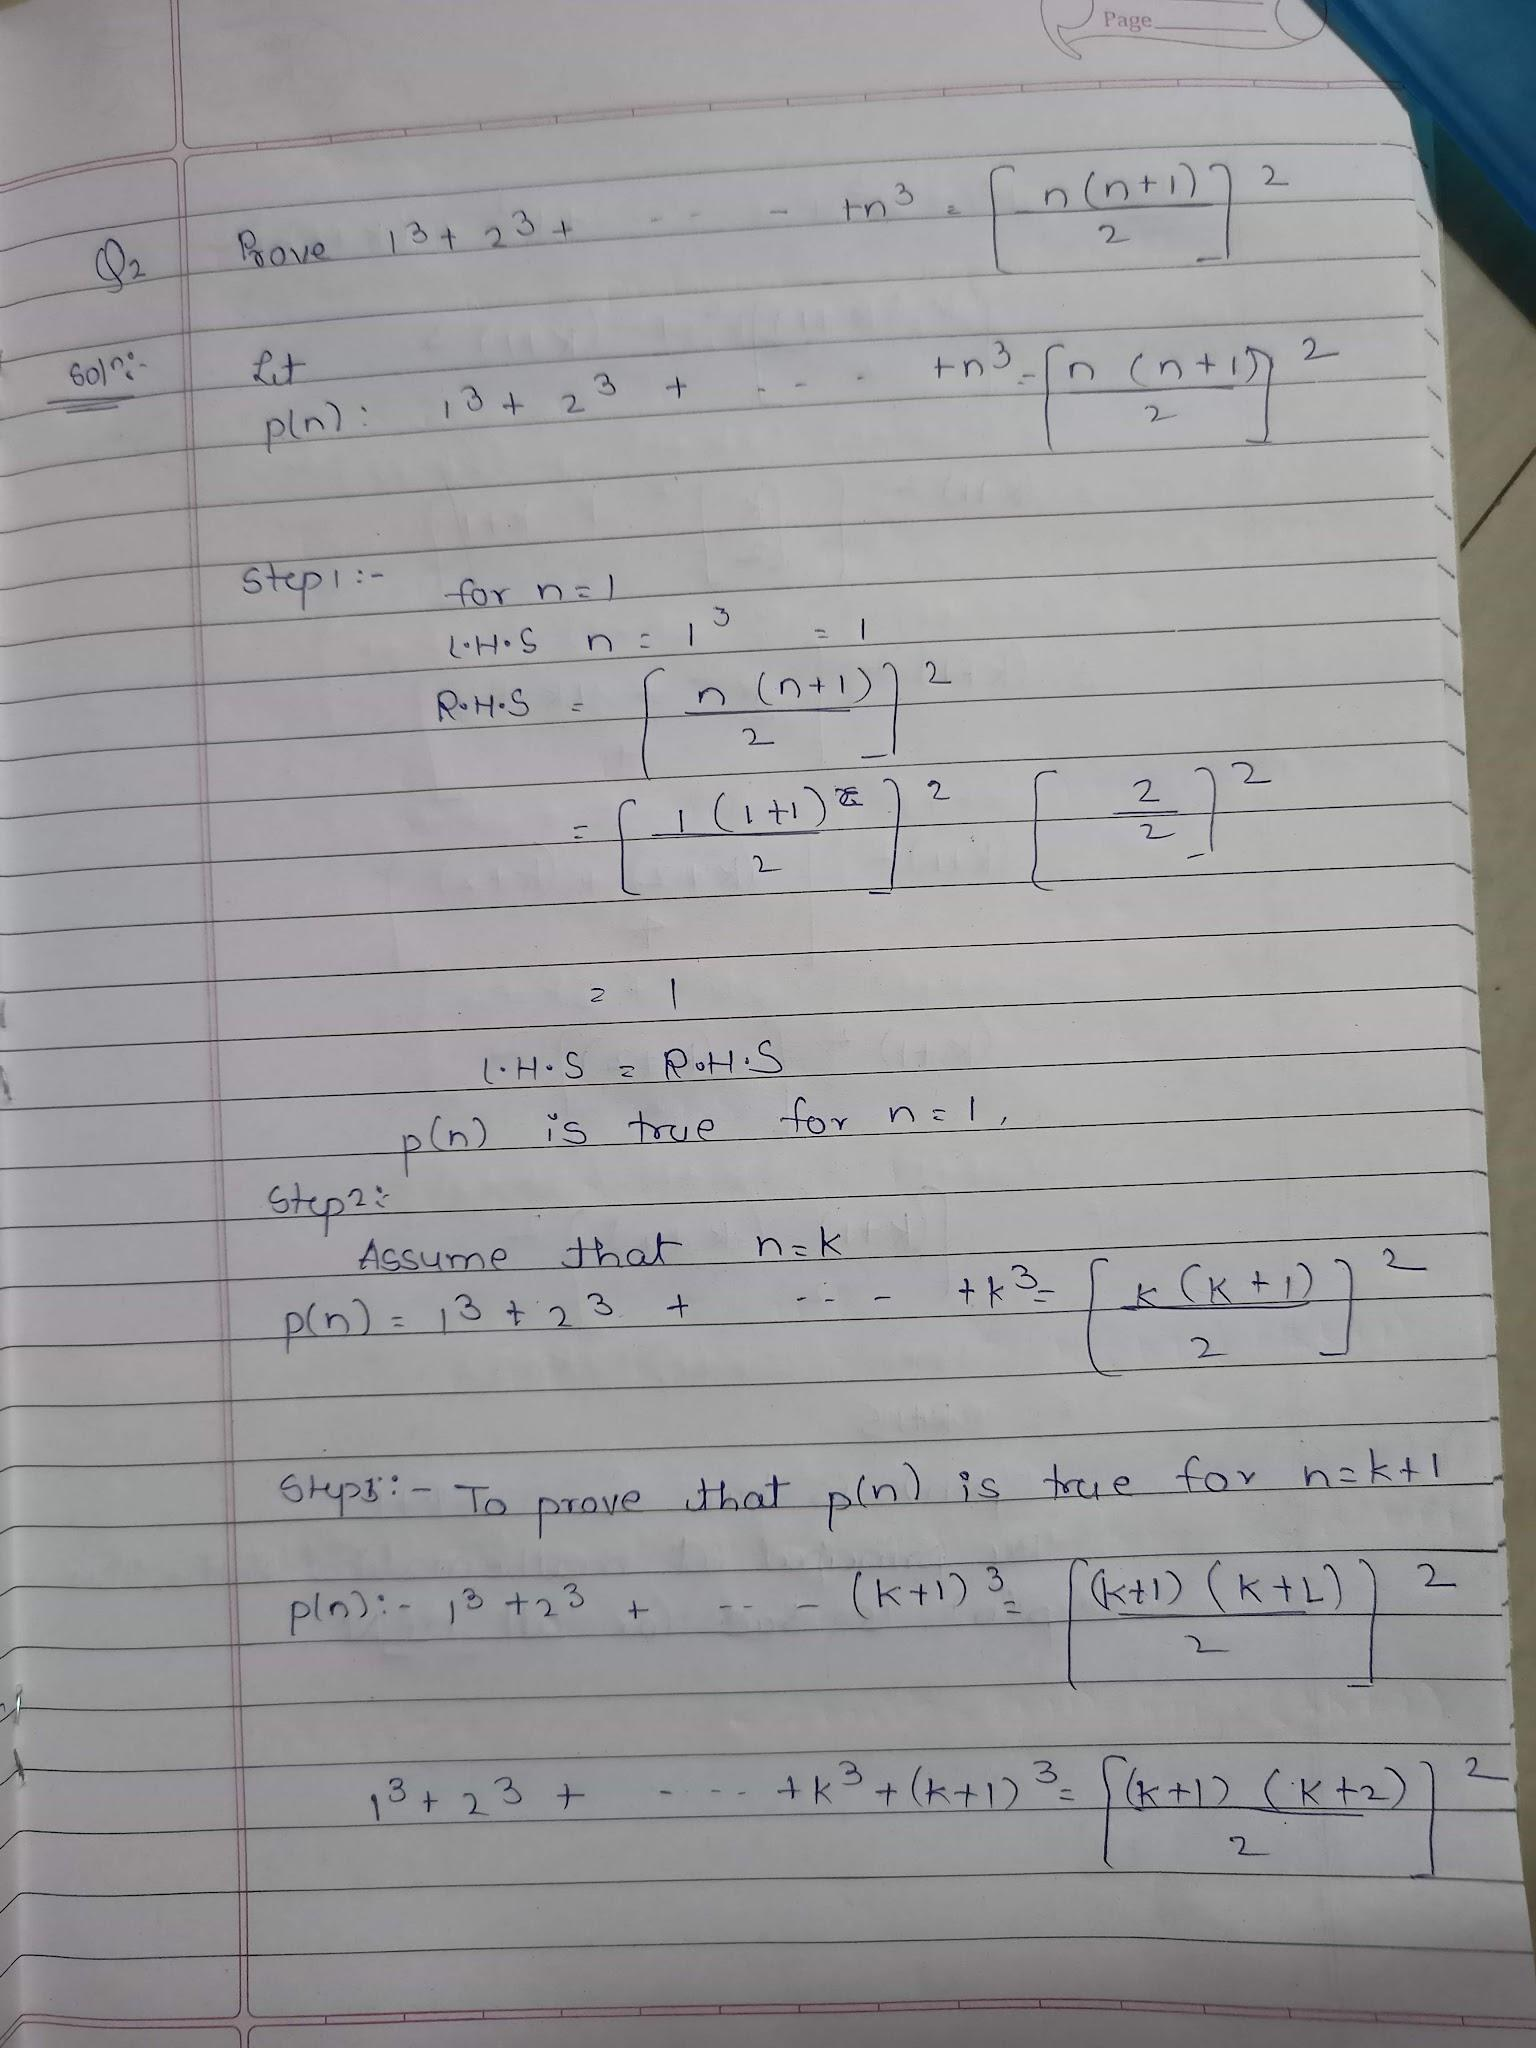 Page
Q2 Prove 1³ + 2³ + - - - +n³ = [n(n+1)/2]²
Soln:- Let
p(n): 1³ + 2³ + - - - +n³ = [n (n+1)/2]²
Step1 :- for n=1
L.H.S n = 1³ = 1
R.H.S = [n (n+1)/2]²
= [1 (1+1)/2]² [2/2]²
= 1
L.H.S = R.H.S
p(n) is true for n=1,
Step2:
Assume that n=k
p(n) = 1³ + 2³ + - - - +k³ = [k (k+1)/2]²
Step3:- To prove that p(n) is true for n=k+1
p(n):- 1³ +2³ + - - - (k+1)³ = [(k+1) (k+2)/2]²
1³ + 2³ + - - - - +k³ +(k+1)³ = [(k+1) (k+2)/2]²